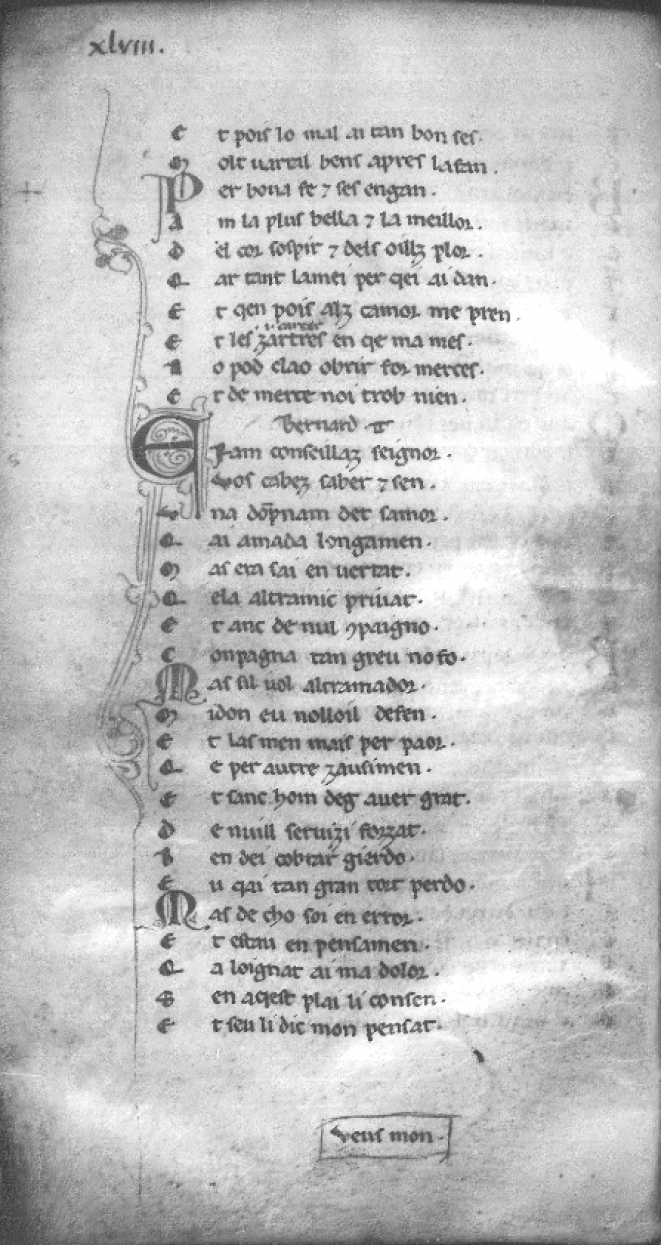 xlviii.
E t pois lo mal ai tan bon ses.
M olt uartal bens apres lafan.
P er bona fe ⁊ ses engan.
A m la plus bella ⁊ la meillor.
D el cor sospir ⁊ dels oillz plor.
Q ar tant lamei per qei ai dan.
E t qen pois alz camor me pren.
E t les zartres en qe ma mes.
N o pod clao obrir for merces.
E t de merce noi trob nien.
Bernard
E Ram conseillaz seignor.
Vos cabez saber ⁊ sen.
V na dōpnam det samor.
Q ai amada longamen.
M as era sai en uertat.
Q ela altramic priuat.
E t anc de nul ꝯpaigno.
C onpagna tan greu no fo.
M as sil uol altramador.
M idon eu nolloil defen.
E t lasmen mais per paor.
Q e per autre zausimen.
E t sanc hom deg auer grat.
D e nuill seruizi forzat.
B en dei cobrar gierdo.
E u qai tan gran tort perdo.
M as de cho soi en error.
E t estau en pensamen.
Q a loignat ai ma dolor.
S en aqest plai li consen.
E t seu li dic mon pensat.
veus mon.